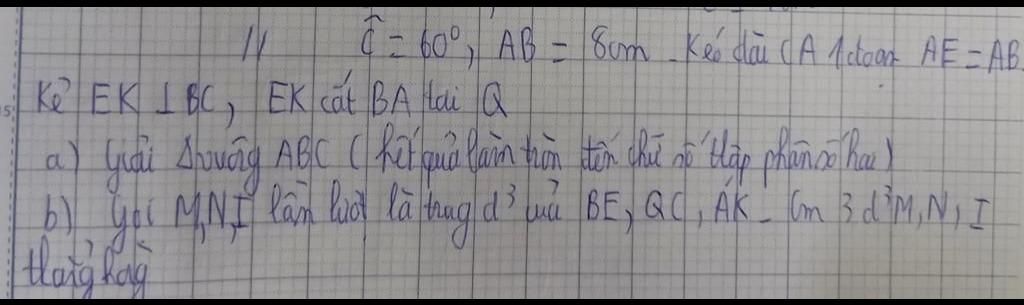 // Ĉ = 60°, AB = 8cm. Kéo dài CA 1 đoạn AE = AB
Kẻ EK ⊥ BC, EK cắt BA tại Q
a) Giải Δvuông ABC (kết quả làm tròn đến chữ số thập phân số hai)
b) Gọi M,N,I lần lượt là trung d³ của BE, QC, AK. Cm 3 d³ M, N, I
thẳng hàng